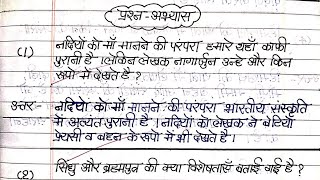 प्रश्न-अभ्यास
(1) नदियों को माँ मानने की परंपरा हमारे यहाँ काफी
पुरानी है । लेकिन लेखक नागार्जुन उन्हें और किन
रूपों में देखते हैं ?
उत्तर:- नदियों को माँ मानने की परंपरा भारतीय संस्कृति
में अत्यंत पुरानी है । नदियों को लेखक ने बेटियों
प्रेयसी व बहन के रूपों में भी देखते है ।
(2) सिंधु और ब्रह्मपुत्र की क्या विशेषताएँ बताई गई है ?